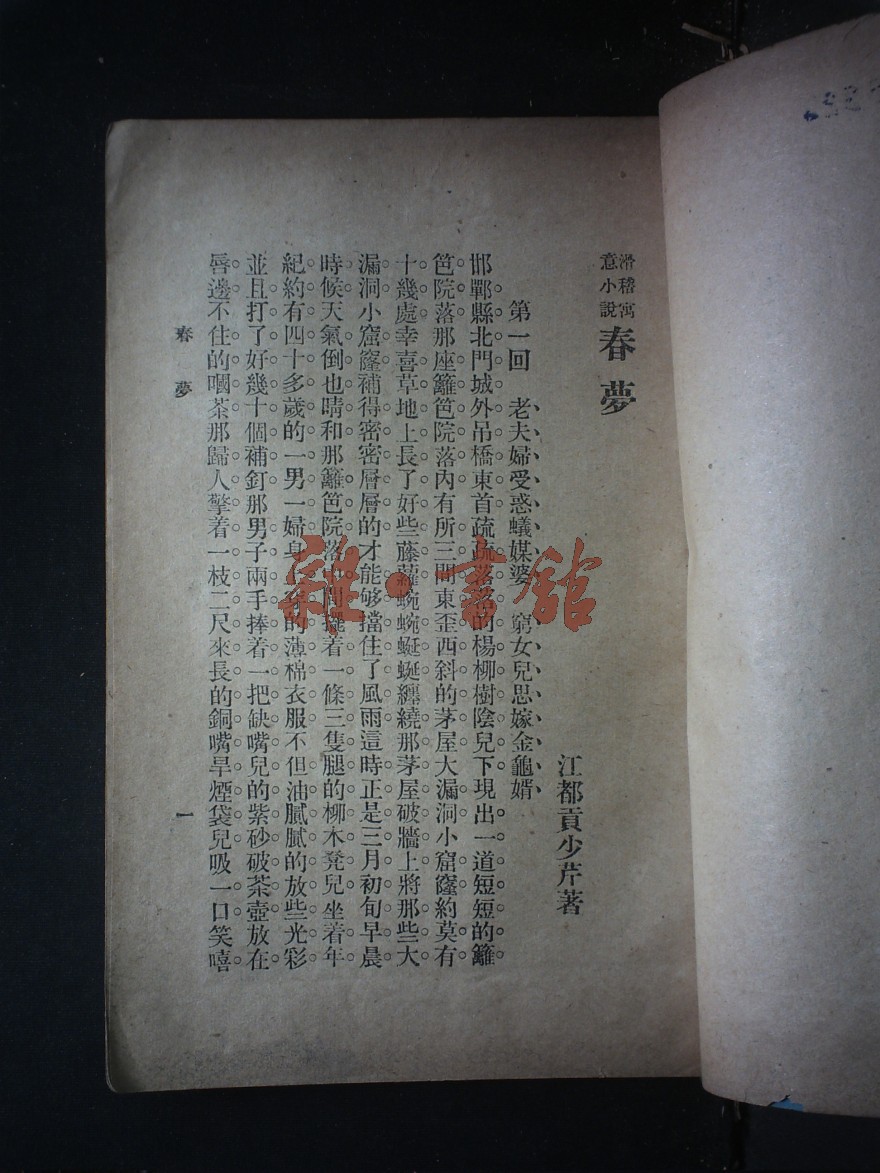 滑稽寓意小說 春夢
江都貢少芹著
第一回 老夫婦受惑蟻媒婆 窮女兒思嫁金龜婿
邯鄲縣北門城外吊橋東首疏疏落落的楊柳樹陰兒下現出一道短短的籬
笆院落那座籬笆院落內有所三間東歪西斜的茅屋大漏洞小窟窿約莫有
十幾處幸喜草地上長了好些藤蘿蜿蜿蜒蜒纏繞那茅屋破牆上將那些大
漏洞小窟窿補得密密層層的才能够擋住了風雨這時正是三月初旬早晨
時候天氣倒也晴和那籬笆院落中間擺着一條三隻腿的柳木凳兒坐着年
紀約有四十多歲的一男一婦身上穿的薄棉衣服不但油膩膩的放些光彩
並且打了好幾十個補釘那男子兩手捧着一把缺嘴兒的紫砂破茶壺放在
唇邊不住的嘓茶那歸人擎着一枝二尺來長的銅嘴旱煙袋兒吸一口笑嘻
春夢
一
雜·書館